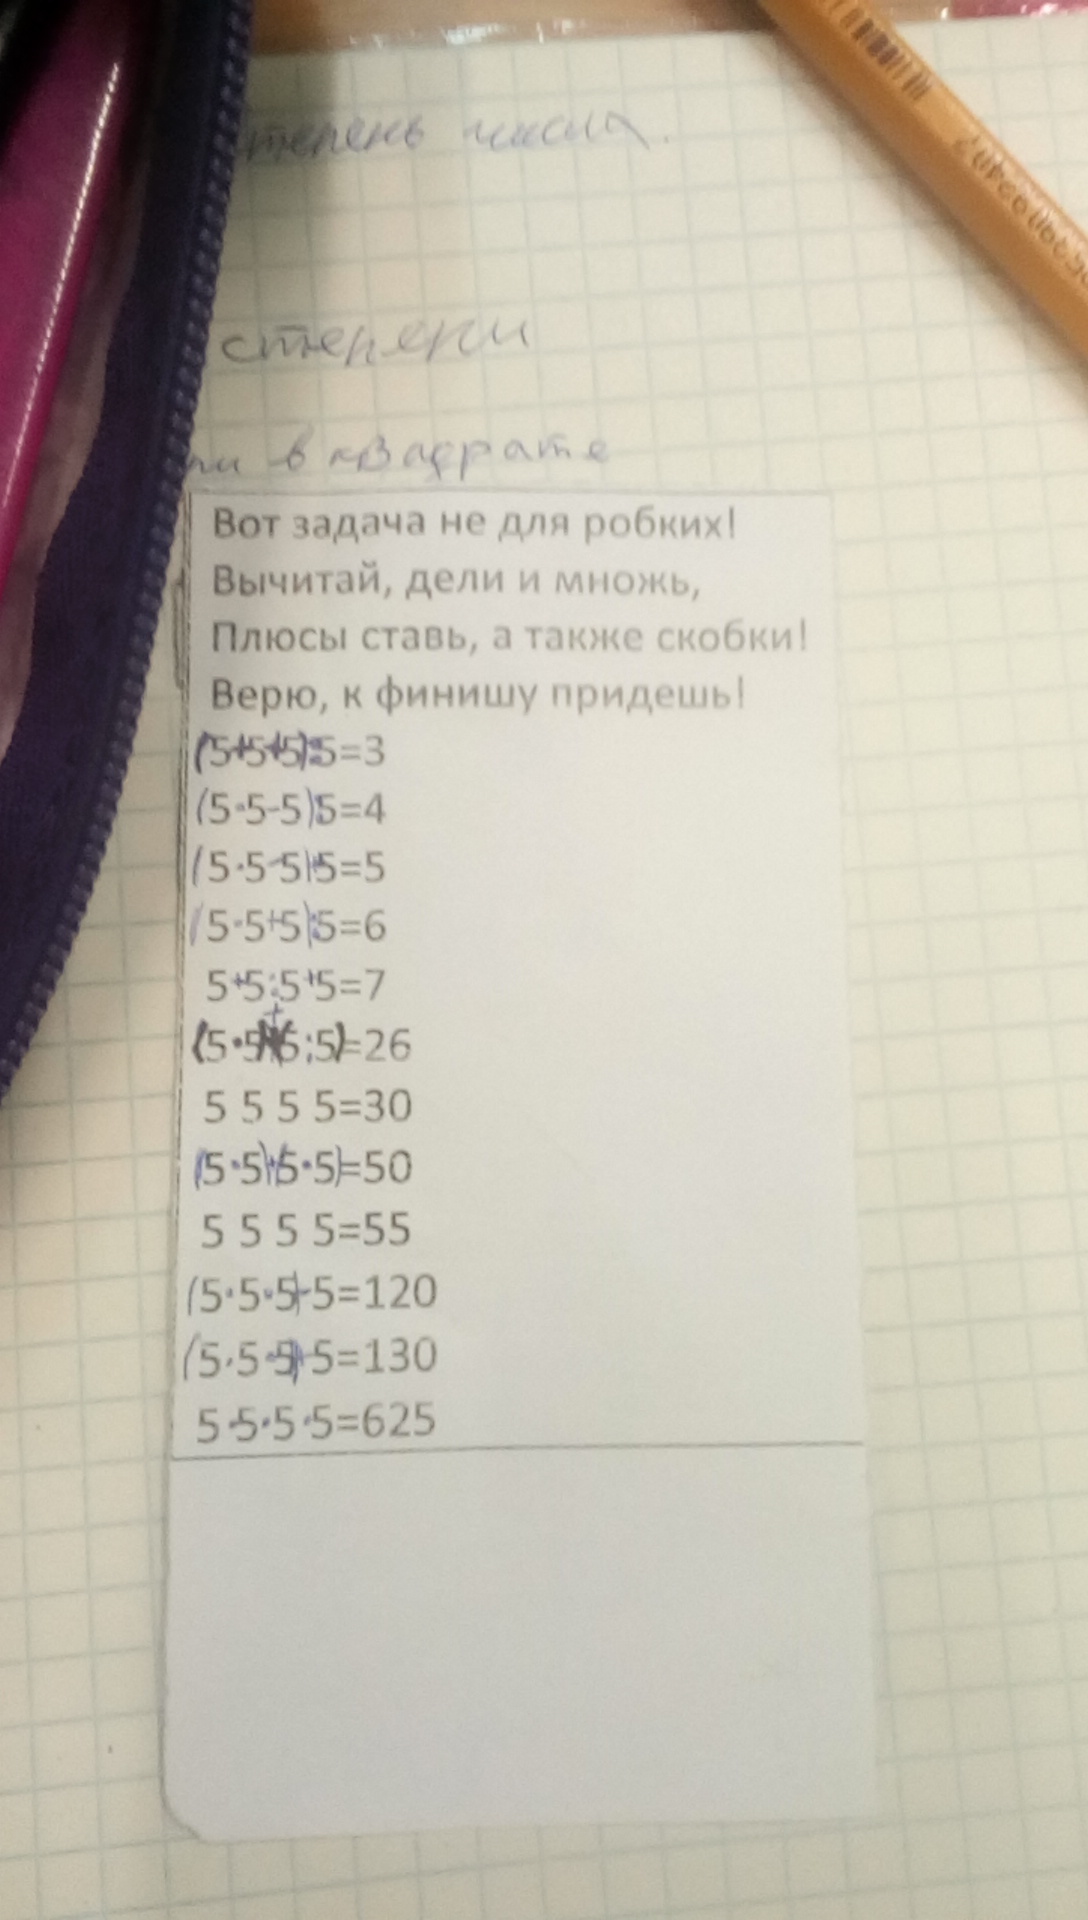 степени
в квадрате
Вот задача не для робких!
Вычитай, дели и множь,
Плюсы ставь, а также скобки!
Верю, к финишу придешь!
(5+5+5):5=3
(5·5-5):5=4
(5·5-5) 5=5
(5·5+5):5=6
5+5:5+5=7
(5·5)+(5:5)=26
5 5 5 5=30
(5·5)+(5·5)=50
5 5 5 5=55
(5·5·5)-5=120
(5·5·5)+5=130
5·5·5·5=625